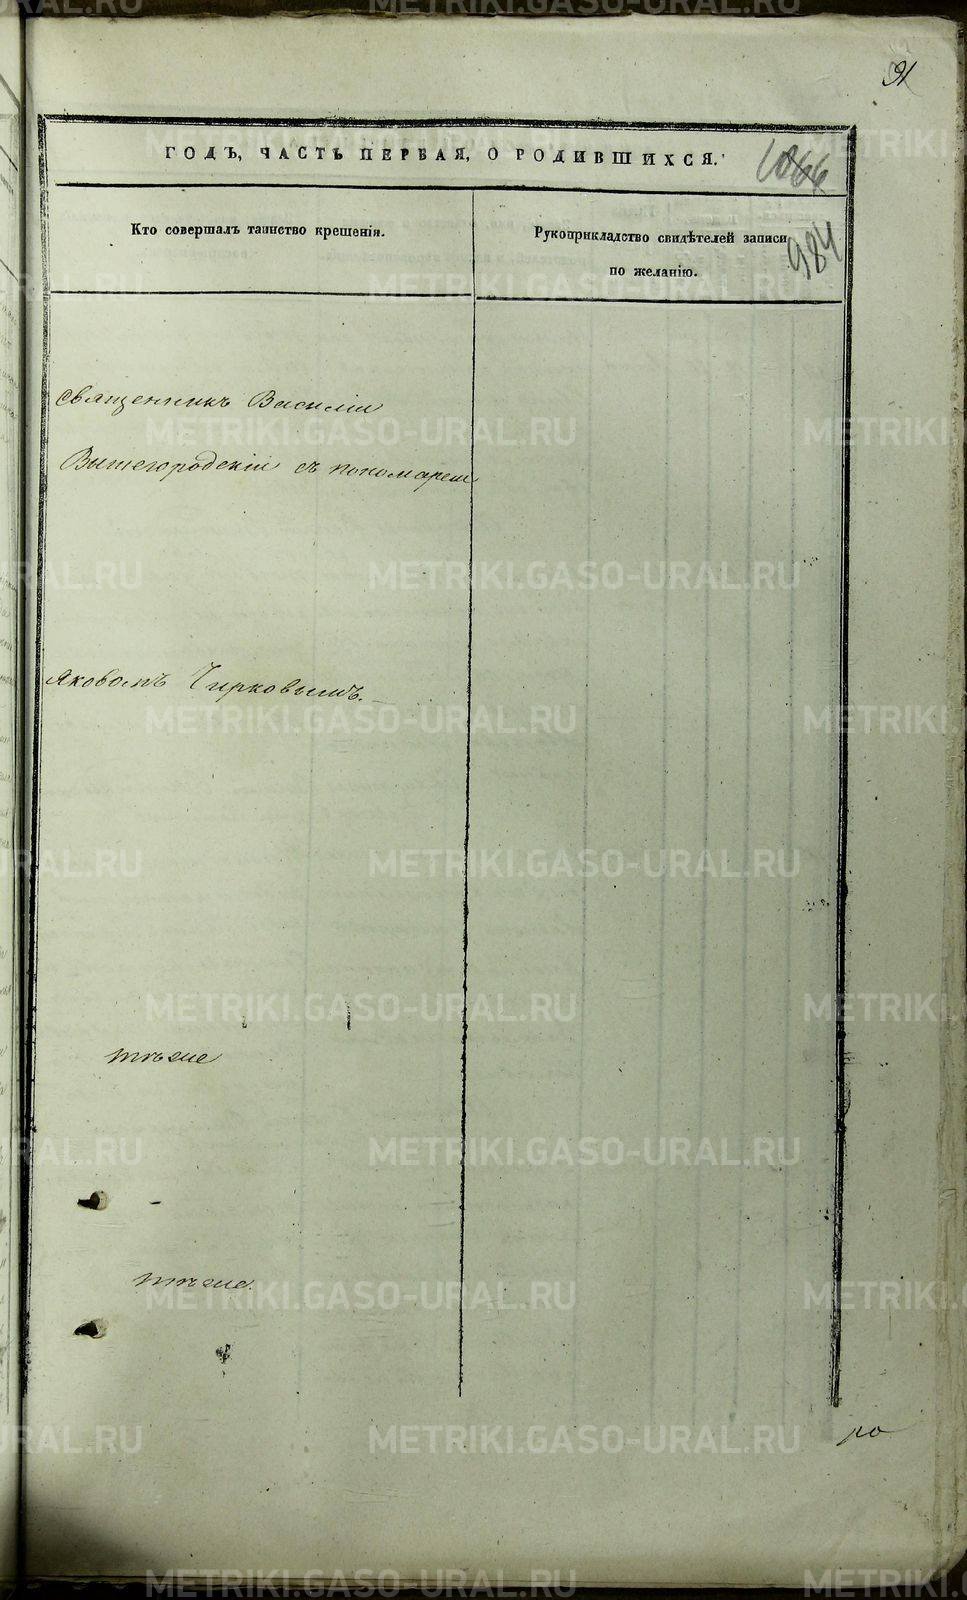 91
ГОДЪ, ЧАСТЬ ПЕРВАЯ, О РОДИВШИХСЯ.
1066
984
Кто совершалъ таинство крещенія.
Рукоприкладство свидѣтелей записи
по желанію.
Священникъ Василіи
Вышегородскіи съ пономаремъ
Яковомъ Чирковымъ.
тѣже
тѣже.
METRIKI.GASO-URAL.RU